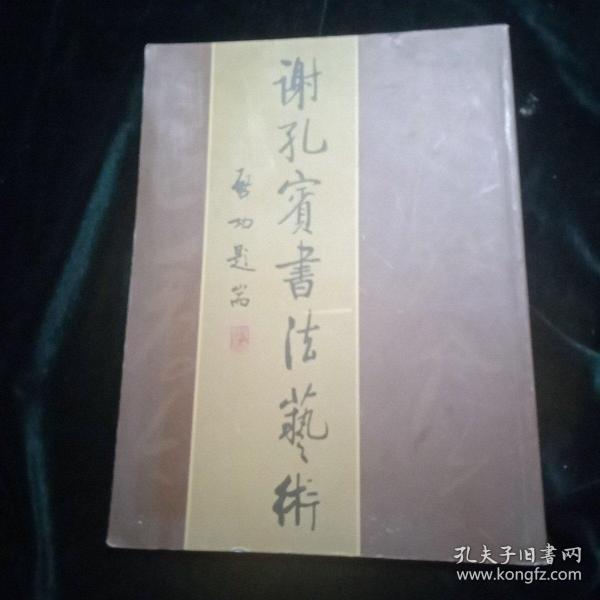 谢孔賓書法藝術
啓功題耑
孔夫子旧书网
www.kongfz.com